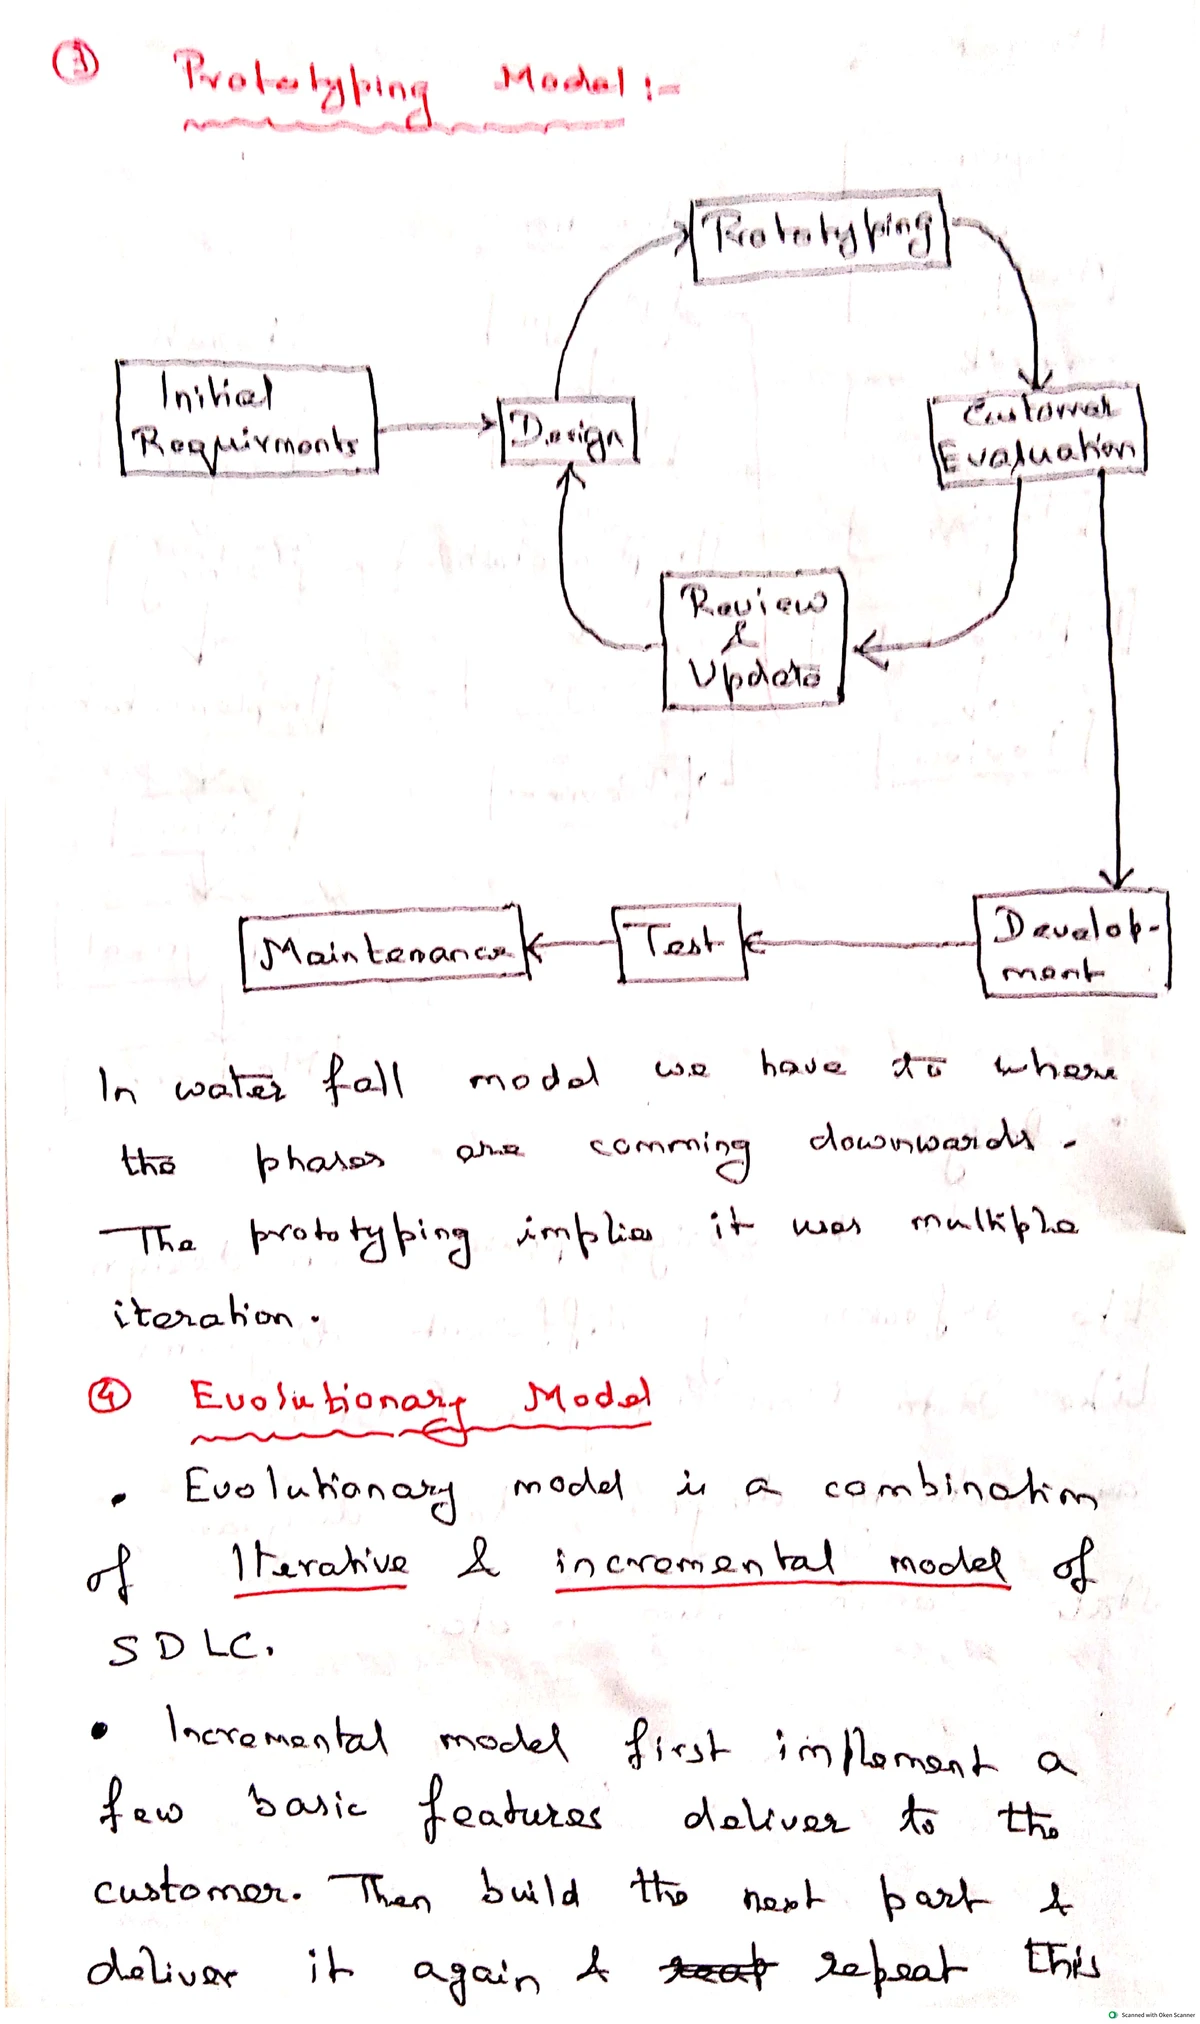 ③ Prototyping Model :-
Prototyping
Initial
Requirments
Design
Customer
Evaluation
Review
&
Update
Maintenance
Test
Develop-
ment
In water fall model we have to where
the phases are comming downwards.
The prototyping implies it was multiple
iteration.
④ Evolutionary Model
• Evolutionary model is a combination
of Iterative & incremental model of
SDLC.
• Incremental model first implement a
few basic features deliver to the
customer. Then build the next part &
deliver it again & repeat this
Scanned with Oken Scanner